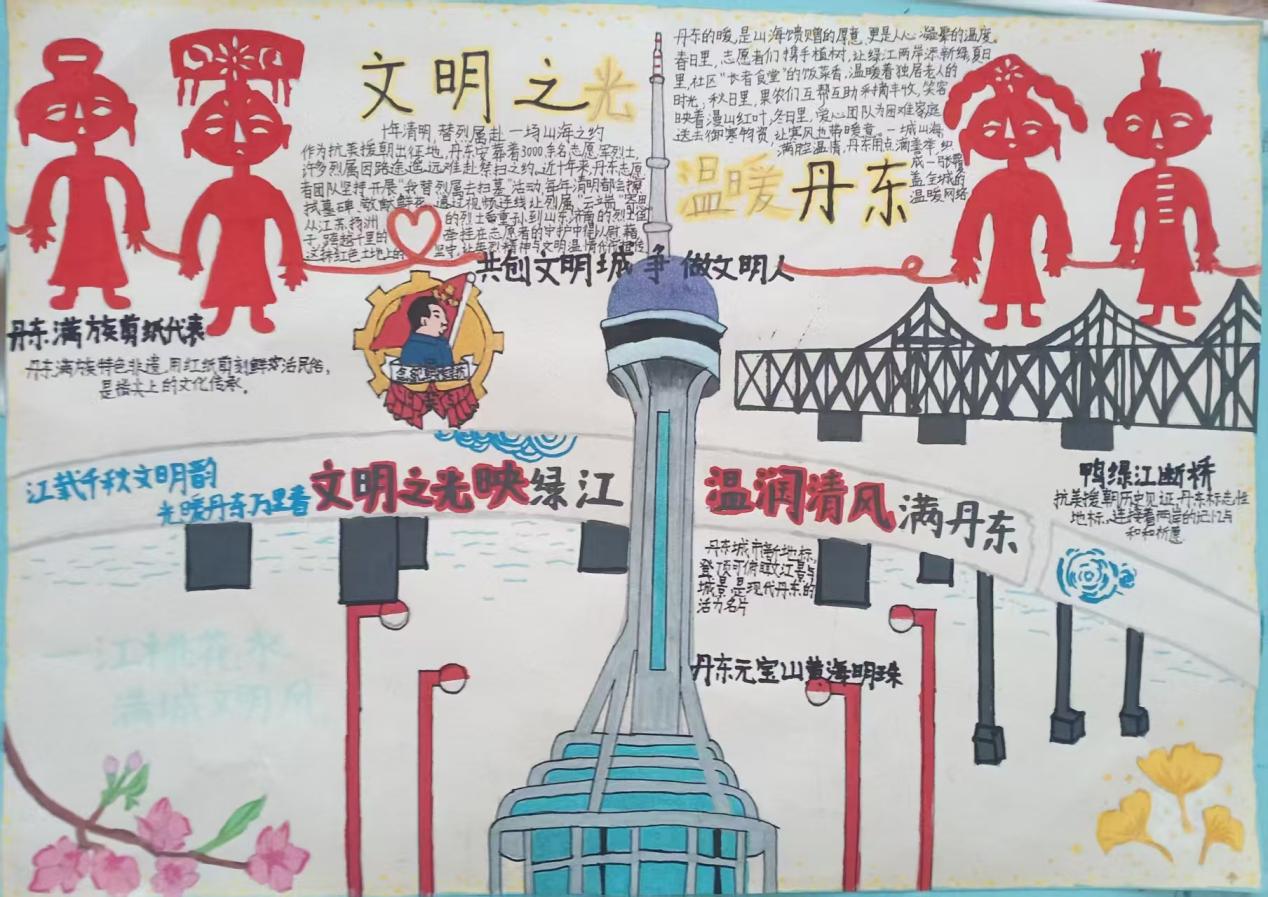 文明之光
十年清明,替烈属赴一场山海之约
作为抗美援朝出征地,丹东安葬着3000余名志愿军烈士,
许多烈属因路途遥远难赴祭扫之约。近十年来,丹东志愿
者团队坚持开展“我替烈属去扫墓”活动,每年清明都会擦
拭墓碑、敬献鲜花,通过视频连线让烈属“云端”
从江苏扬州
的烈士
到山东济南的烈士
子,跨越千里的
牵挂在志愿者的守护中得以慰藉
这抹红色土地上的
坚守,让英烈精神与文明温情代代相传
丹东的暖,是山海馈赠的厚意,更是人心凝聚的温度。
春日里,志愿者们携手植树,让绿江两岸添新绿,夏日
里,社区“长者食堂”的饭菜香,温暖着独居老人的
时光;秋日里,果农们互帮互助采摘丰收,笑容
映着漫山红叶;冬日里,爱心团队为困难家庭
送去御寒物资,让寒风也带暖意。一城山海
满腔温情,丹东用点滴善举,织
成一张覆
盖全城的
温暖网络
温暖丹东
共创文明城 争做文明人
丹东满族剪纸代表
丹东满族特色非遗,用红纸剪刻鲜活民俗,
是指尖上的文化传承。
江载千秋文明韵
光暖丹东万里春
文明之光映绿江
温润清风满丹东
鸭绿江断桥
抗美援朝历史见证,丹东标志性
地标,连接着两岸的记忆与
和平祈愿
丹东城市新地标,
登顶可俯瞰江景与
城景,是现代丹东的
活力名片
丹东元宝山黄海明珠
一江桃花水
满城文明风